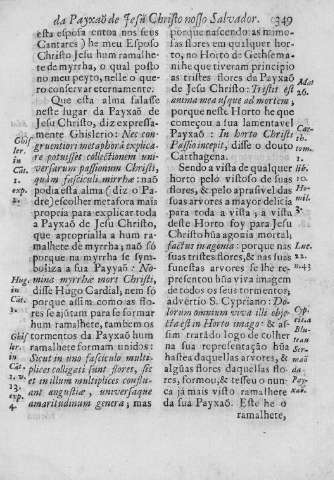 da Payxaõ de Jesu Christo nosso Salvador. 349
esta esposa entoa nos seus
Cantares) he meu Esposo
Christo Jesu hum ramalhe-
te de myrrha, o qual posto
no meu peyto, nelle o que-
ro conservar eternamente.
Que esta alma falasse
neste lugar da Payxaõ de
Jesu Christo, diz expressa-
mente Ghislerio: Nec con-
gruentiori metaphorâ explica-
re potuisset collectionem uni-
versarum passionum Christi,
quàm fasciculi myrrhæ: naõ
podia esta alma (diz o Pa-
dre) escolher metafora mais
propria para explicar toda
a Payxaõ de Jesu Christo,
que apropriarlha a hum ra-
malhete de myrrha; naõ só
porque na myrrha se sym-
boliza a sua Payxaõ: No-
mina myrrhæ mors Christi,
disse Hugo Cardial, nem só
porque assim como as flo-
res se ajuntam para se formar
hum ramalhete, tambem os
tormentos da Payxaõ hum
ramalhete formam unidos:
Sicut in uno fasciculo multi-
plices colligati sunt flores, sic
et in illum multiplices conflu-
ant angustiæ, universaque
amaritudinum genera; mas
Ghis
ler.
in
Cãt.
1.
exp.
2.
Hug.
in
Cãt.
1.
Ghis
ler.
in
Cãt.
1. v.
13.
exp.
4.
porque nascendo as mimo-
sas flores em qualquer hor-
to, no Horto de Gethsema-
nì he que tiveram principio
as tristes flores da Payxaõ
de Jesu Christo: Tristis est
anima mea usque ad mortem;
porque neste Horto he que
começou a sua lamentavel
Payxaõ: In horto Christi
Passio incepit, disse o douto
Carthagena.
Sendo a vista de qualquer
horto pelo vistoso de suas
flores, & pelo aprasivel das
suas arvores a mayor delicia
para toda a vista; a vista
deste Horto foy para Jesu
Christo hũa agonia mortal;
factus in agonia: porque nas
suas tristes flores, & nas suas
funestas arvores se lhe re-
presentou hũa viva imagem
de todos os seus tormentos;
advertio S. Cypriano: Do-
lorum omnium viva illi obje-
cta est in Horto imago: & as-
sim tratado logo de colher
na sua representação hũa
hastea daquellas arvores, &
algũas flores daquellas flo-
res, formou, & tesseu o nun-
ca já mais visto ramalhete
da sua Payxaõ. Este he o
ramalhete,
Mat
26.
Car-
to.
tom.
1.
lib.
10.
Ho-
mil.
3.
Luc.
22.
n. 43